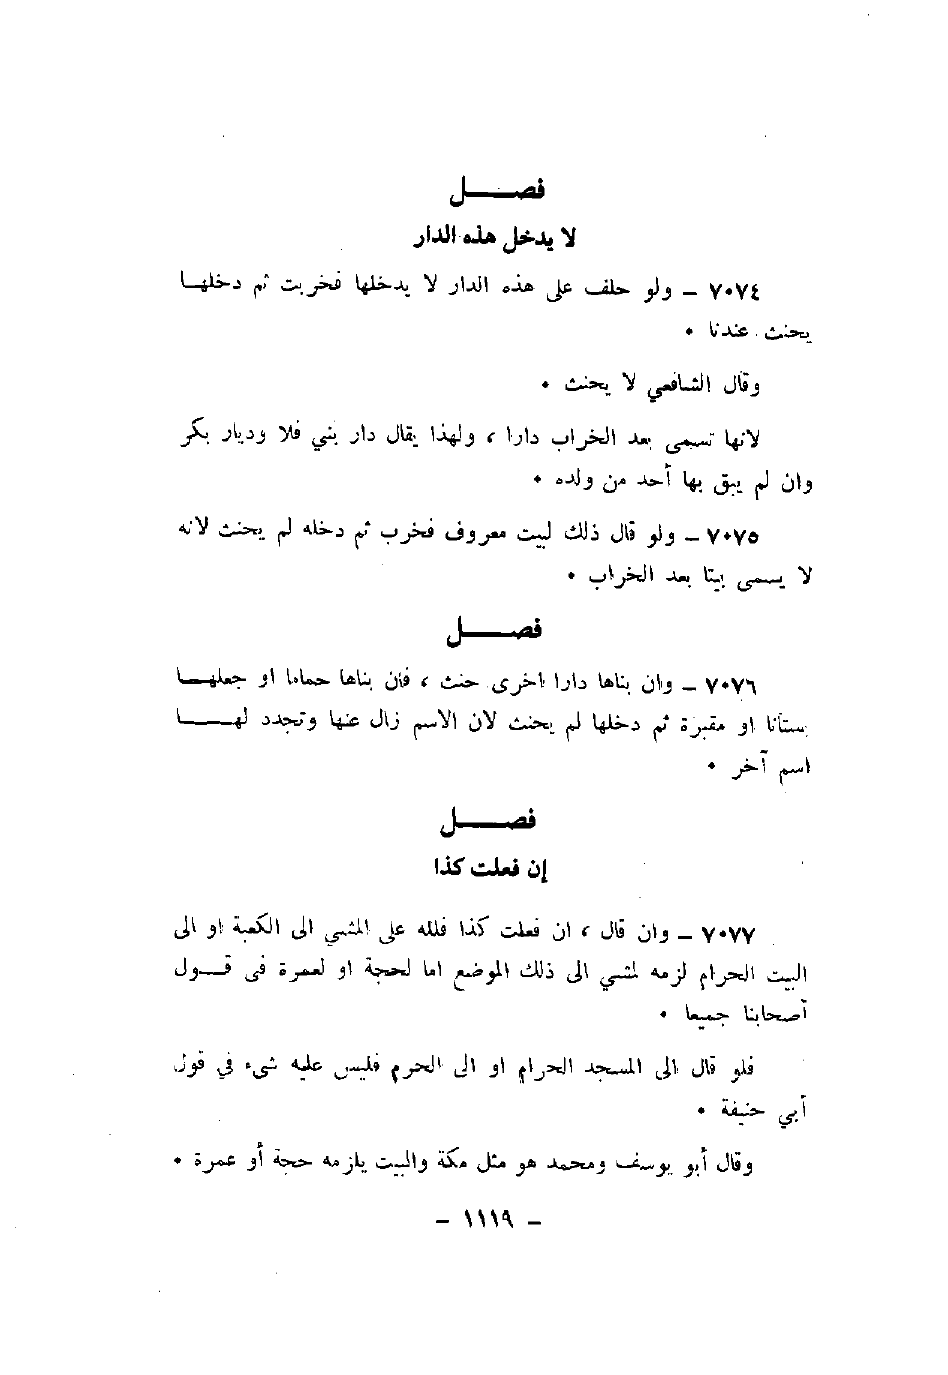 فصــــل
لا يدخل هذه الدار
٧٠٧٤ – ولو حلف على هذه الدار لا يدخلها فخربت ثم دخلهــا
يحنث عندنا •
وقال الشافعي لا يحنث •
لانها تسمى بعد الخراب دارا ، ولهذا يقال دار بني فلا وديار بكر
وان لم يبق بها أحد من ولده •
٧٠٧٥ – ولو قال ذلك لبيت معروف فخرب ثم دخله لم يحنث لانه
لا يسمى بيتا بعد الخراب •
فصــــل
٧٠٧٦ – وان بناها دارا اخرى حنث ، فان بناها حماما او جعلهــا
بستانا او مقبرة ثم دخلها لم يحنث لان الاسم زال عنها وتجدد لهــــا
اسم آخر •
فصــــل
إن فعلت كذا
٧٠٧٧ – وان قال ، ان فعلت كذا فلله على المشي الى الكعبة او الى
البيت الحرام لزمه لمشي الى ذلك الموضع اما لحجة او لعمرة فى قــول
أصحابنا جميعا •
فلو قال الى المسجد الحرام او الى الحرم فليس عليه شىء في قول
أبي حنيفة •
وقال أبو يوسف ومحمد هو مثل مكة والبيت يلزمه حجة أو عمرة •
– ١١١٩ –